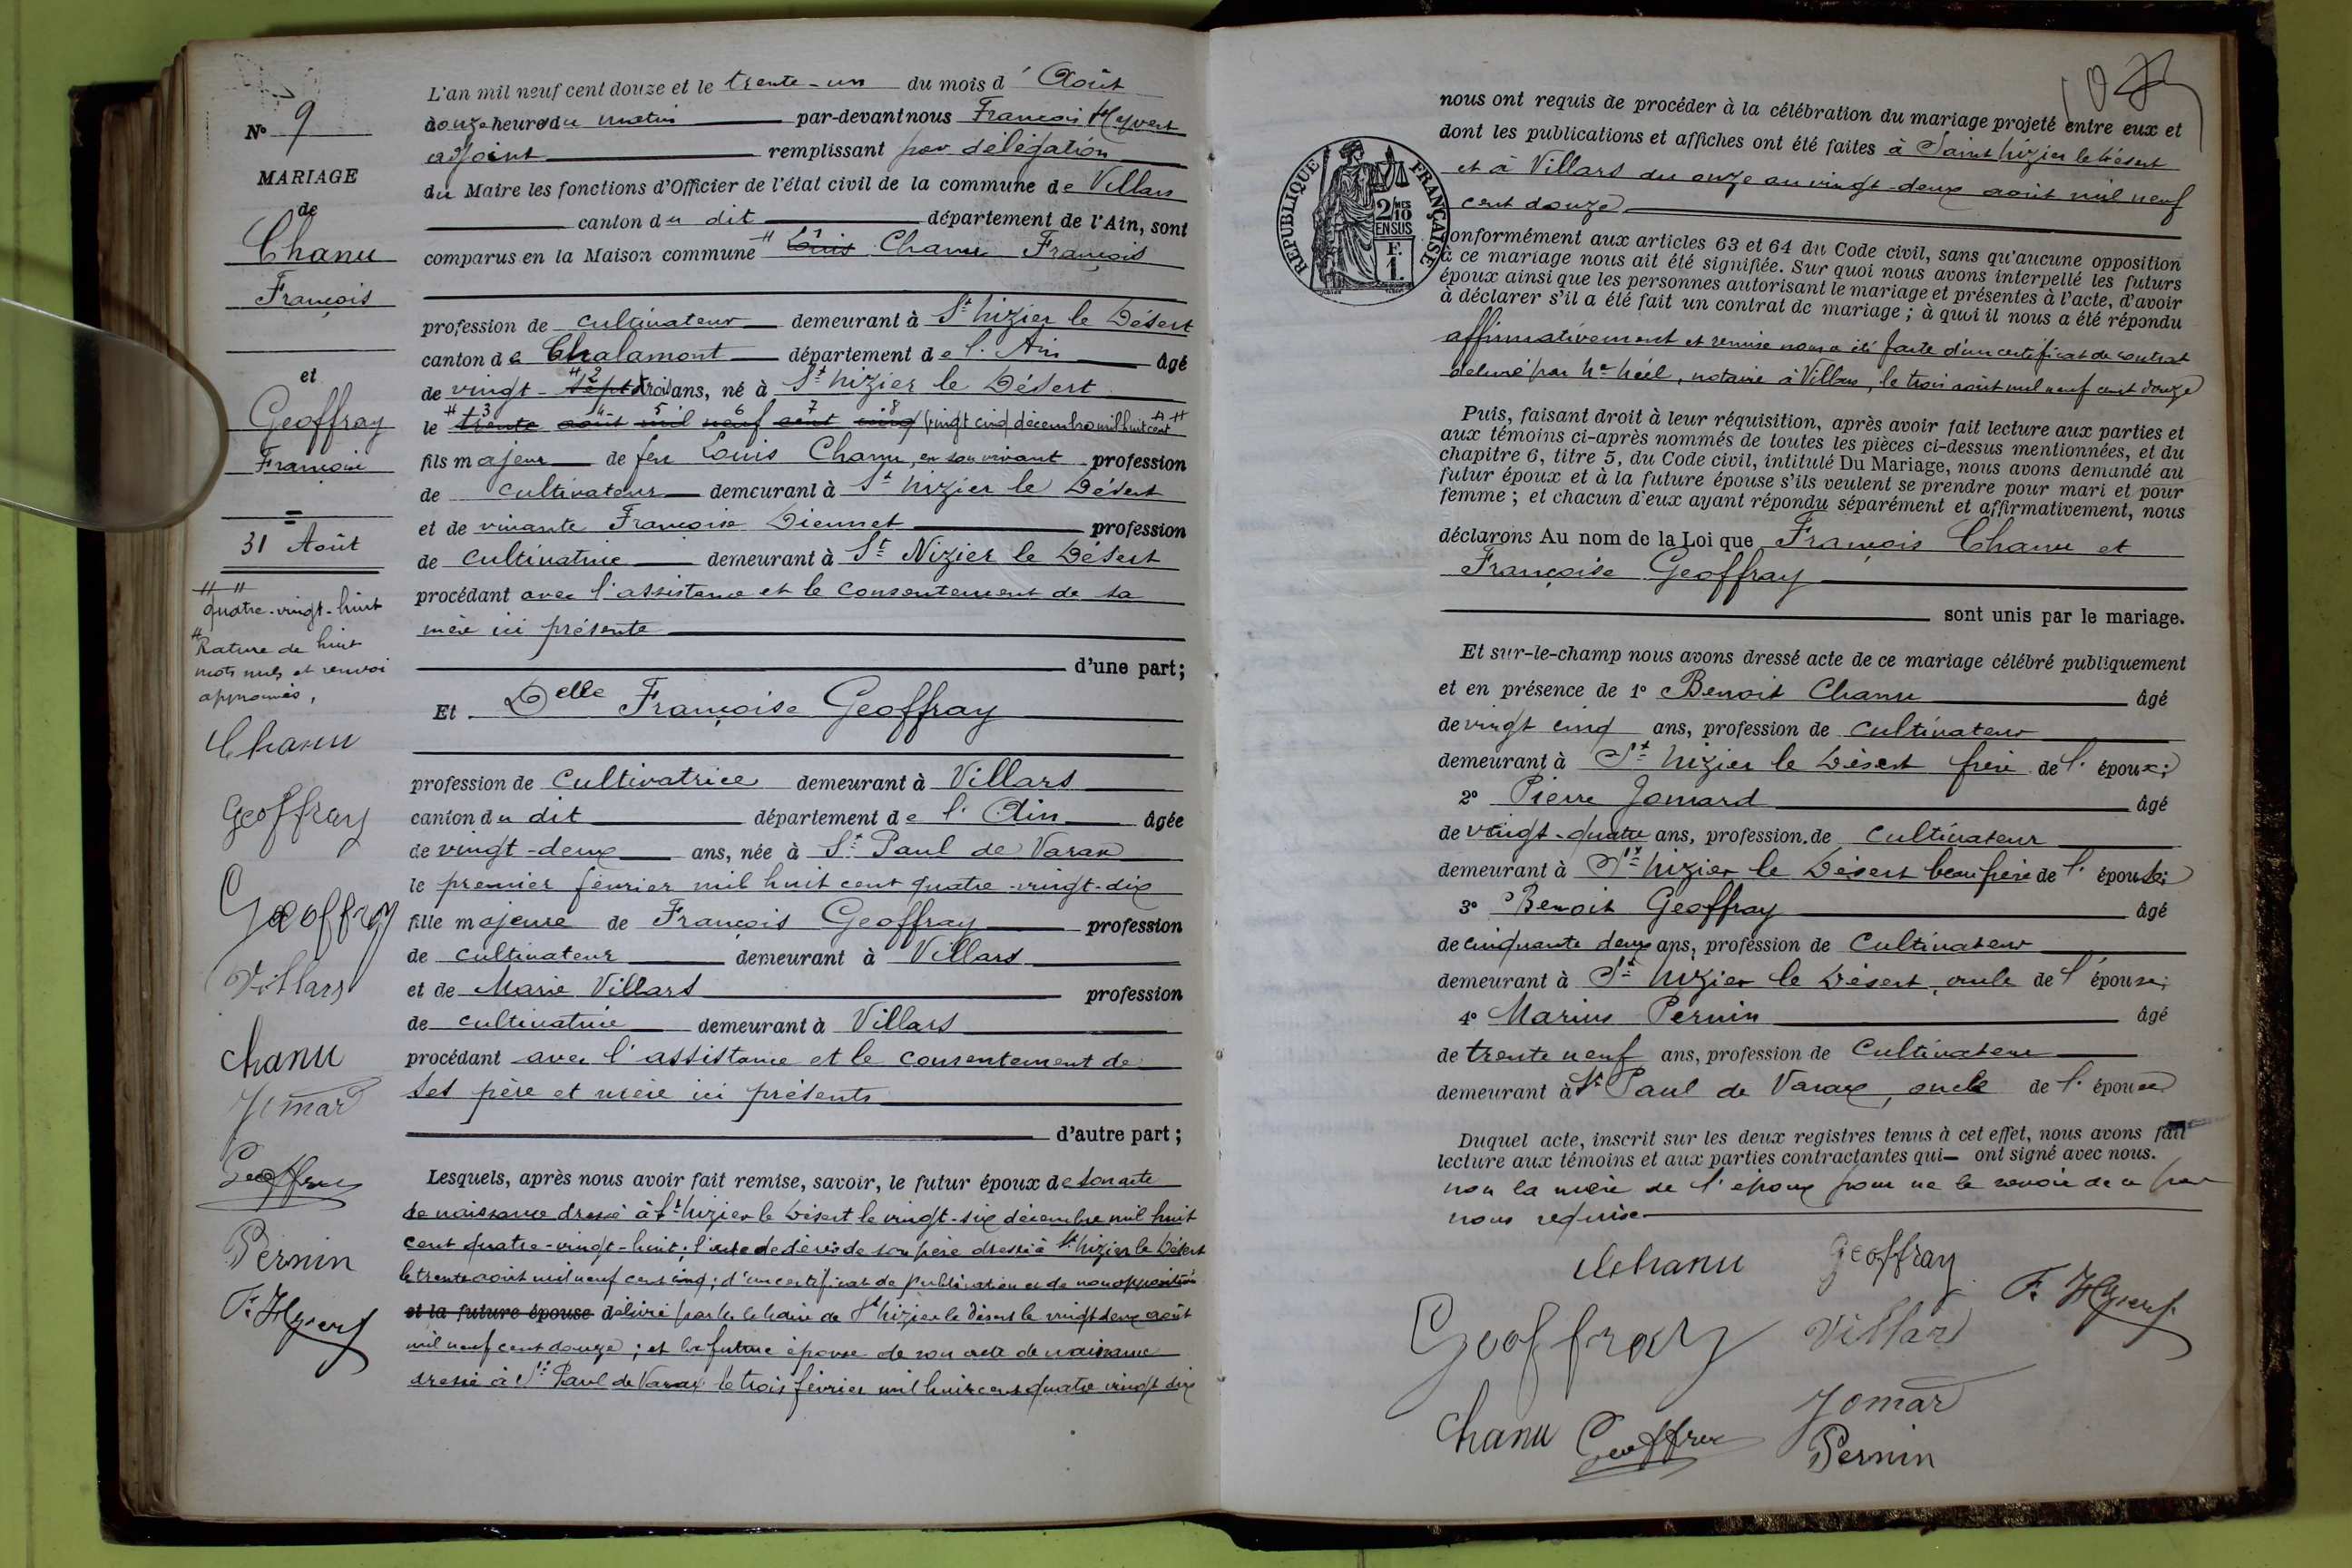 N° 9
MARIAGE
de
Chanu
François
et
Geoffray
Françoise
31 Août
quatre-vingt-huit
Rature de huit
mots nuls et renvoi
approuvés,
Chanu
Geoffray
Geoffray
Villars
Chanu
Jomard
Geoffray
Pernin
F. Hyvert
L'an mil neuf cent douze et le trente-un du mois d'Août
à onze heures du matin par-devant nous François Hyvert
adjoint remplissant par délégation
du Maire les fonctions d'Officier de l'état civil de la commune de Villars
canton du dit département de l'Ain, sont
comparus en la Maison commune Louis Chanu François
profession de cultivateur demeurant à St Nizier le Désert
canton de Chalamont département de l'Ain âgé
de vingt-sept trois ans, né à St Nizier le Désert
le trente août mil neuf cent cinq vingt cinq décembre mil huit cent
fils majeur de feu Louis Chanu, en son vivant profession
de cultivateur demeurant à St Nizier le Désert
et de vivante Françoise Diennet profession
de cultivatrice demeurant à St Nizier le Désert
procédant avec l'assistance et le consentement de sa
mère ici présente
d'une part;
Et Delle Françoise Geoffray
profession de cultivatrice demeurant à Villars
canton du dit département de l'Ain âgée
de vingt-deux ans, née à St Paul de Varax
le premier février mil huit cent quatre-vingt-dix
fille majeure de François Geoffray profession
de cultivateur demeurant à Villars
et de Marie Villars profession
de cultivatrice demeurant à Villars
procédant avec l'assistance et le consentement de
ses père et mère ici présents
d'autre part;
Lesquels, après nous avoir fait remise, savoir, le futur époux de son acte
de naissance dressé à St Nizier le Désert le vingt-six décembre mil huit
cent quatre-vingt-huit; l'acte de décès de son père dressé à St Nizier le Désert
le trente août mil neuf cent cinq; d'un certificat de publication et de non opposition
et la future épouse délivré par le Maire de St Nizier le Désert le vingt deux août
mil neuf cent douze; et la future épouse de son acte de naissance
dressé à St Paul de Varax le trois février mil huit cent quatre vingt dix
nous ont requis de procéder à la célébration du mariage projeté entre eux et
dont les publications et affiches ont été faites à Saint Nizier le Désert
et à Villars du onze au vingt-deux août mil neuf
cent douze
RÉPUBLIQUE FRANÇAISE
2/10 EN SUS
F. 1.
conformément aux articles 63 et 64 du Code civil, sans qu'aucune opposition
à ce mariage nous ait été signifiée. Sur quoi nous avons interpellé les futurs
époux ainsi que les personnes autorisant le mariage et présentes à l'acte, d'avoir
à déclarer s'il a été fait un contrat de mariage; à quoi il nous a été répondu
affirmativement et remise nous a été faite d'un certificat de contrat
délivré par Me Néel, notaire à Villars, le trois août mil neuf cent douze
Puis, faisant droit à leur réquisition, après avoir fait lecture aux parties et
aux témoins ci-après nommés de toutes les pièces ci-dessus mentionnées, et du
chapitre 6, titre 5, du Code civil, intitulé Du Mariage, nous avons demandé au
futur époux et à la future épouse s'ils veulent se prendre pour mari et pour
femme; et chacun d'eux ayant répondu séparément et affirmativement, nous
déclarons Au nom de la Loi que François Chanu et
Françoise Geoffray
sont unis par le mariage.
Et sur-le-champ nous avons dressé acte de ce mariage célébré publiquement
et en présence de 1° Benoit Chanu âgé
de vingt cinq ans, profession de cultivateur
demeurant à St Nizier le Désert frère de l'époux;
2° Pierre Jomard âgé
de vingt-quatre ans, profession de cultivateur
demeurant à St Nizier le Désert beau frère de l'épouse;
3° Benoit Geoffray âgé
de cinquante deux ans, profession de cultivateur
demeurant à St Nizier le Désert, oncle de l'épouse;
4° Marius Pernin âgé
de trente neuf ans, profession de cultivateur
demeurant à St Paul de Varax, oncle de l'épouse
Duquel acte, inscrit sur les deux registres tenus à cet effet, nous avons fait
lecture aux témoins et aux parties contractantes qui ont signé avec nous.
non la mère de l'époux pour ne le savoir de ce par
nous requise
Chanu Geoffray
F. Hyvert
Geoffray Villars
Jomard
Chanu Geoffray
Pernin